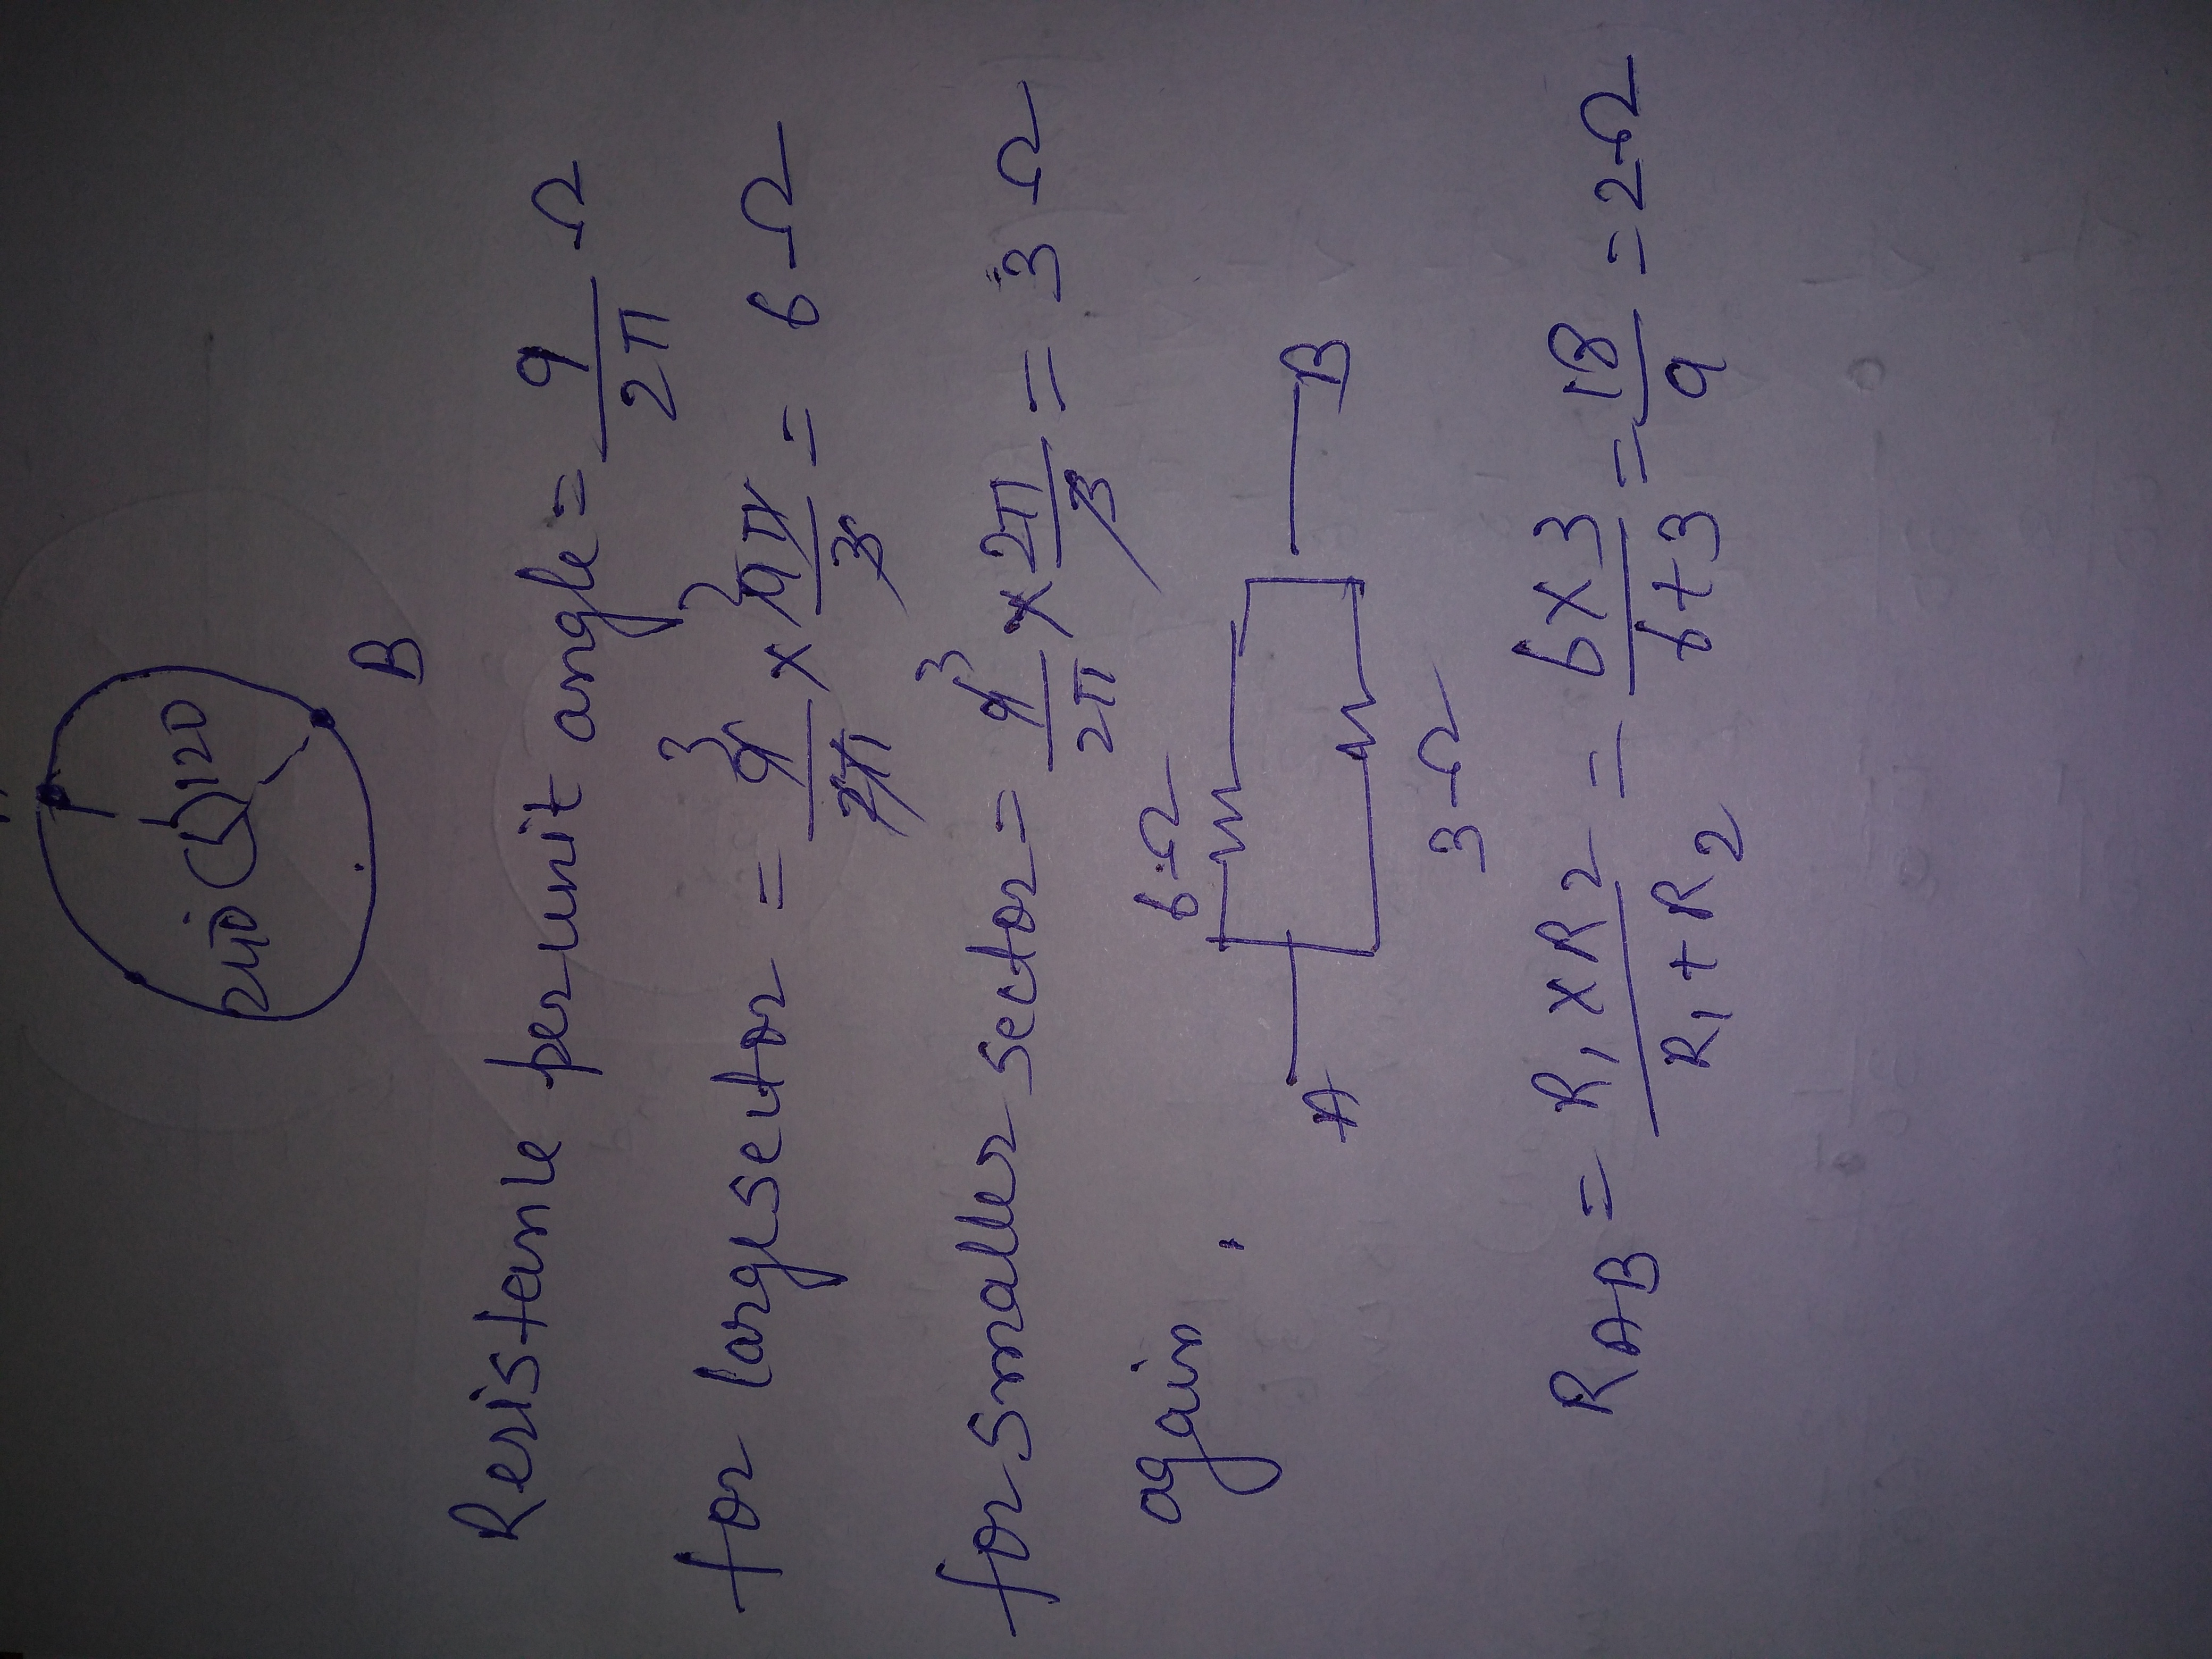 240° 120
B
Resistance per unit angle = 9/2π Ω
for large sector = 9/2π × 4π/3 = 6 Ω
for smaller sector = 9/2π × 2π/3 = 3 Ω
again
6 Ω
A B
3 Ω
R_AB = (R₁ × R₂)/(R₁ + R₂) = (6×3)/(6+3) = 18/9 = 2 Ω